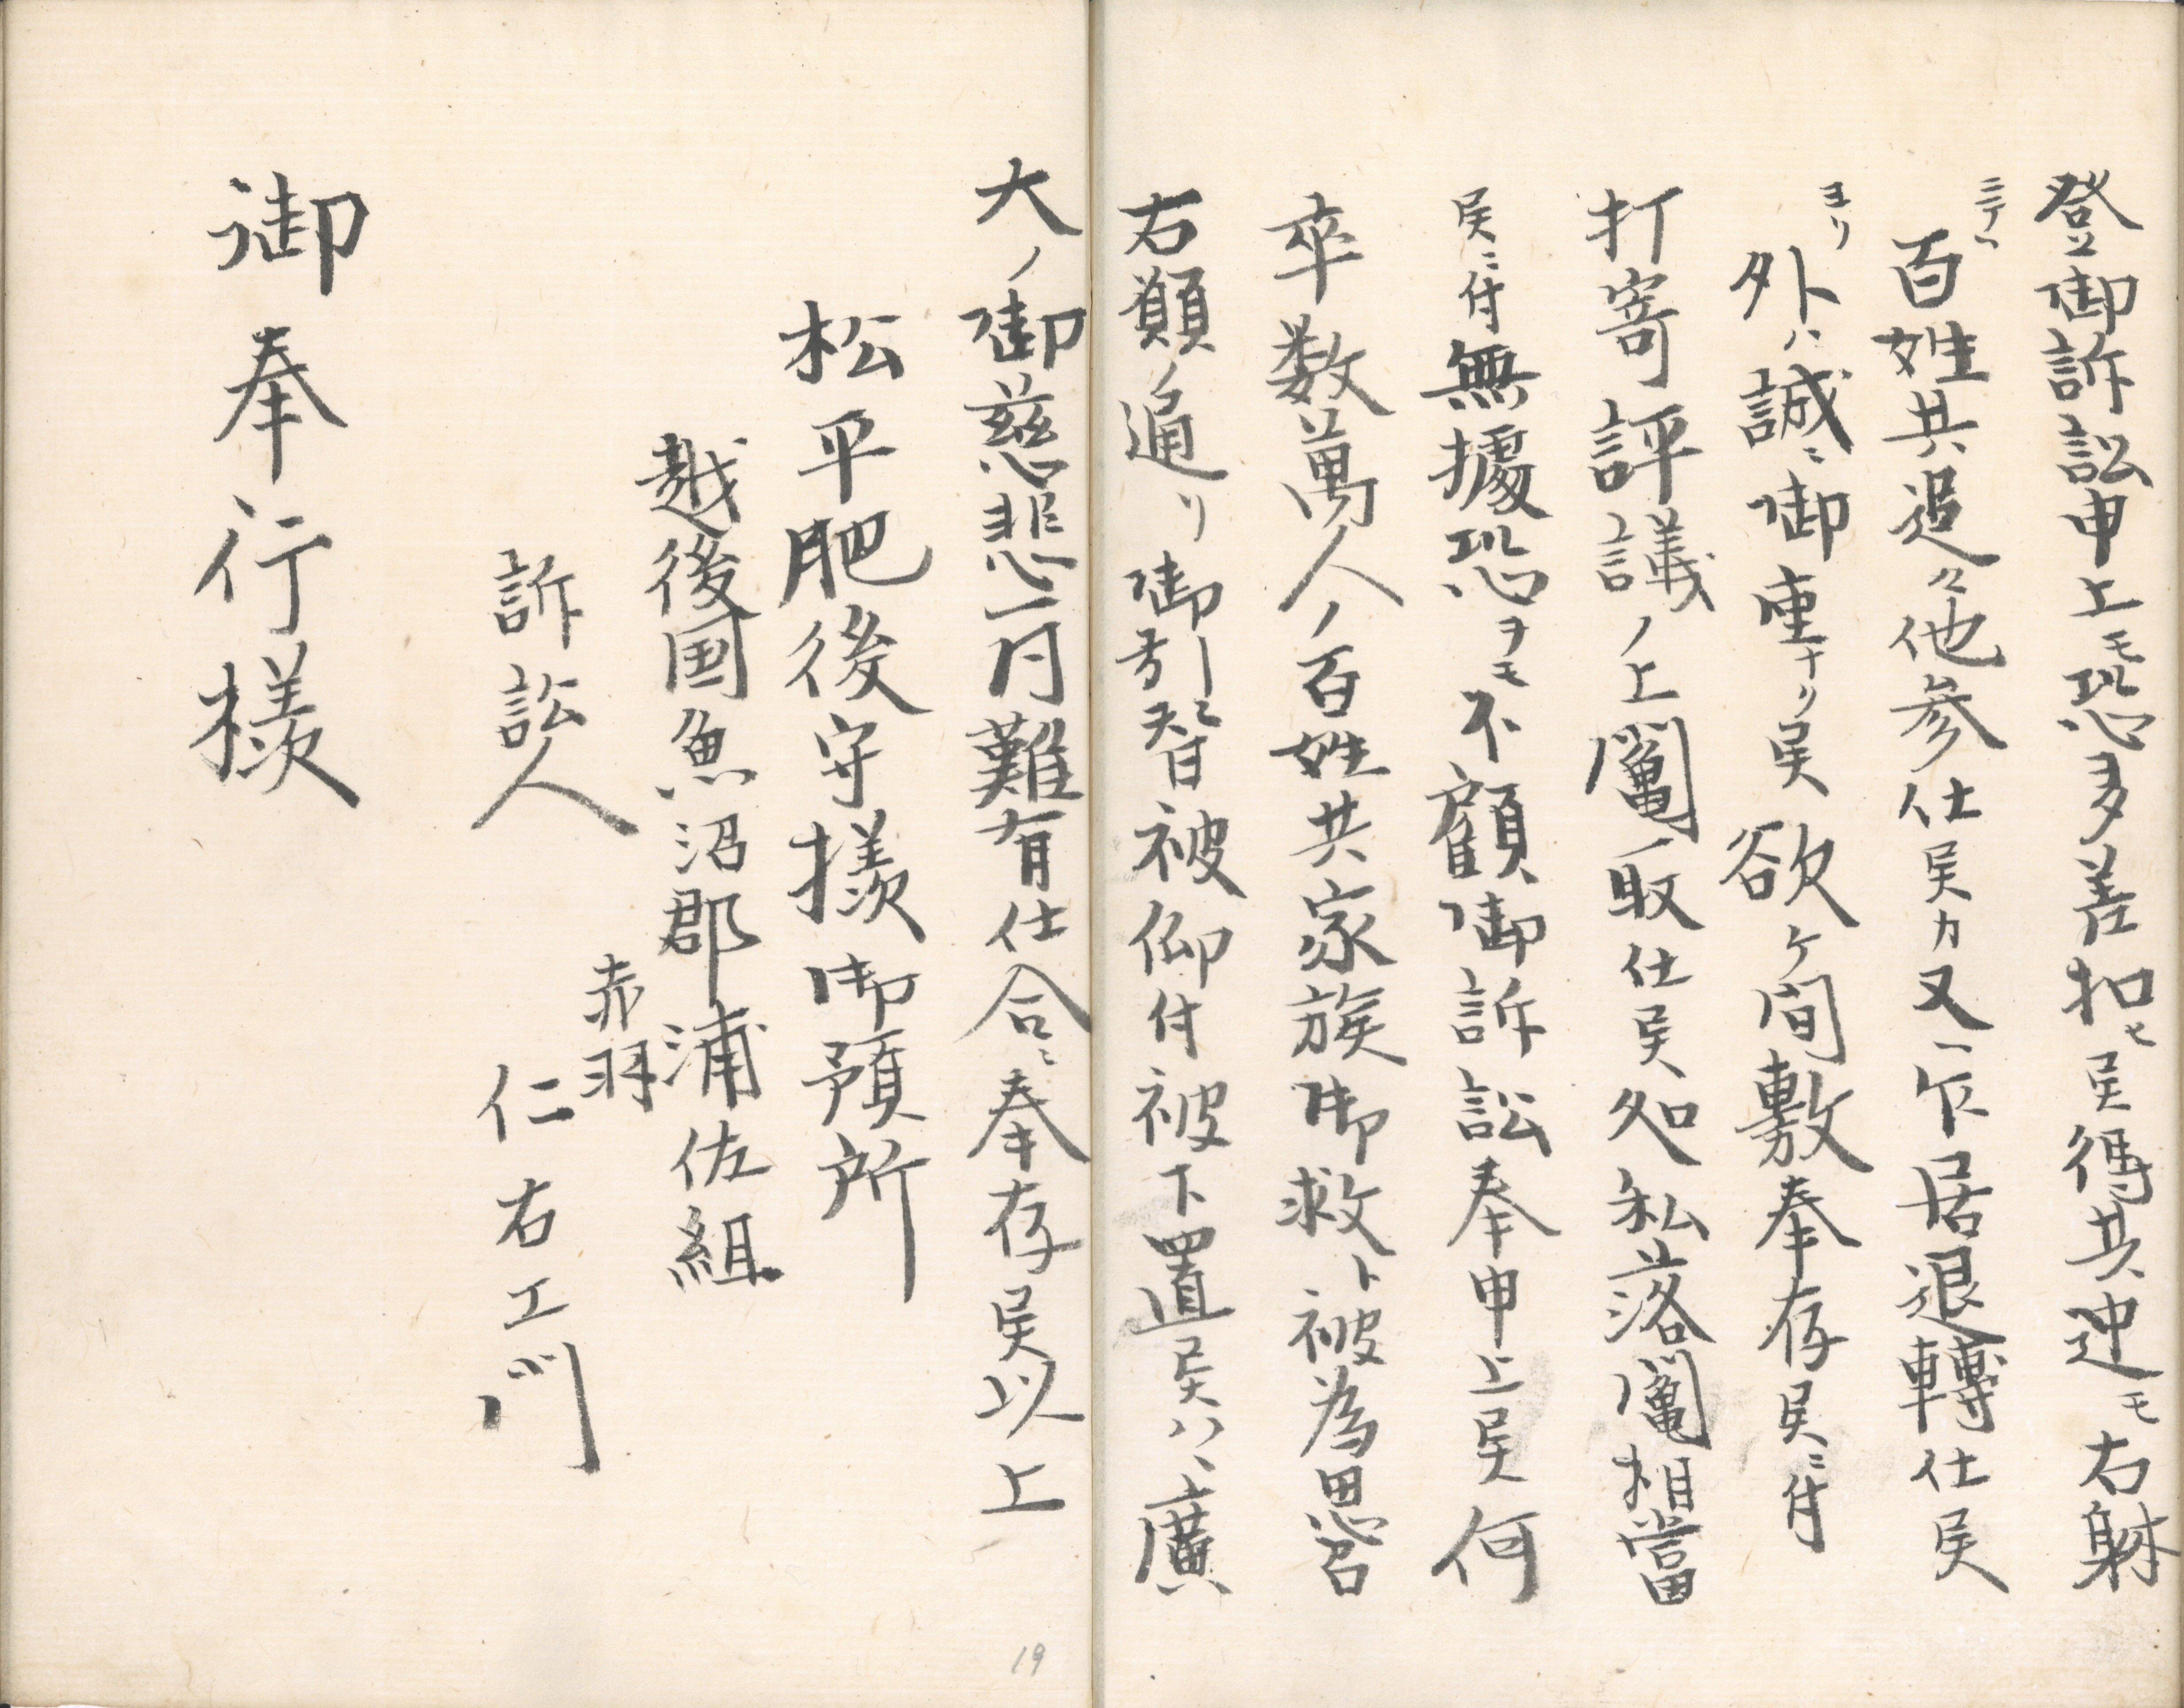 登御訴訟申上モ恐多差扣ヒ候得共迚モ右躰
ニテハ百姓共追々他参仕候カ又ハ乍居退轉仕候
ヨリ外ハ誠ニ御座ナク候歎ケ間敷奉存候ニ付
打寄評議ノ上鬮取仕候処私落鬮相當
候ニ付無據恐ヲモ不顧御訴訟奉申上候何
卒数萬人ノ百姓共家族御救ト被為思召
右願ノ通リ御引替被仰付被下置候ハヽ廣
大ノ御慈悲一同難有仕合ニ奉存候以上
松平肥後守様御預所
越後国魚沼郡浦佐組
赤羽
訴訟人 仁右エ門
御奉行様
19